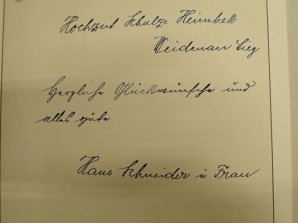 Hochzeit Schulze Heimbell
Weidenau Sieg
Herzliche Glückwünsche und
alles gute
Hans Schneider u Frau